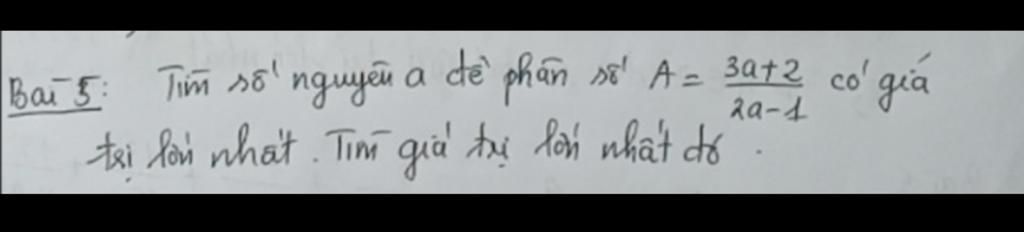 Bài 5: Tìm số nguyên a để phân số A = \frac{3a+2}{2a-1} có giá
trị lớn nhất. Tìm giá trị lớn nhất đó.